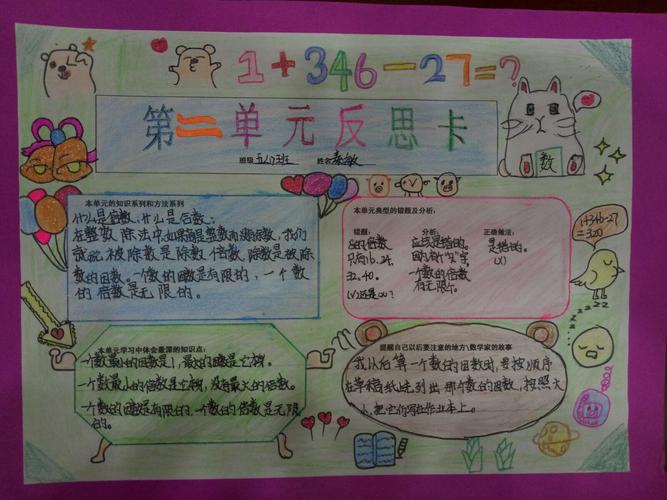 1+346-27=?
第二单元反思卡
班级 五(1)班 姓名 秦敏
数
本单元的知识系列和方法系列
什么是倍数,什么是因数:
在整数除法中,如果商是整数而没有余数,我们
就说被除数是除数倍数,除数是被除
数的因数。一个数的因数是有限的,一个数
的倍数是无限的。
本单元典型的错题及分析:
错题: 分析: 正确做法:
8的倍数 应该是错的。 是错的。
只有16、24、 因为 (×)
32、40。 一个数的倍数
(√)还是(×)? 有无限个。
1+346-27
=320
本单元学习中体会最深的知识点:
一个数最小的因数是1,最大的因数是它本身。
一个数最小的倍数是它本身,没有最大的倍数。
一个数的因数是有限的,一个数的倍数是无限
的。
提醒自己以后要注意的地方\数学家的故事
我以后算一个数的因数时,要按顺序
在草稿纸上列出那个数的因数,按照大
小,把它们写在作业本上。